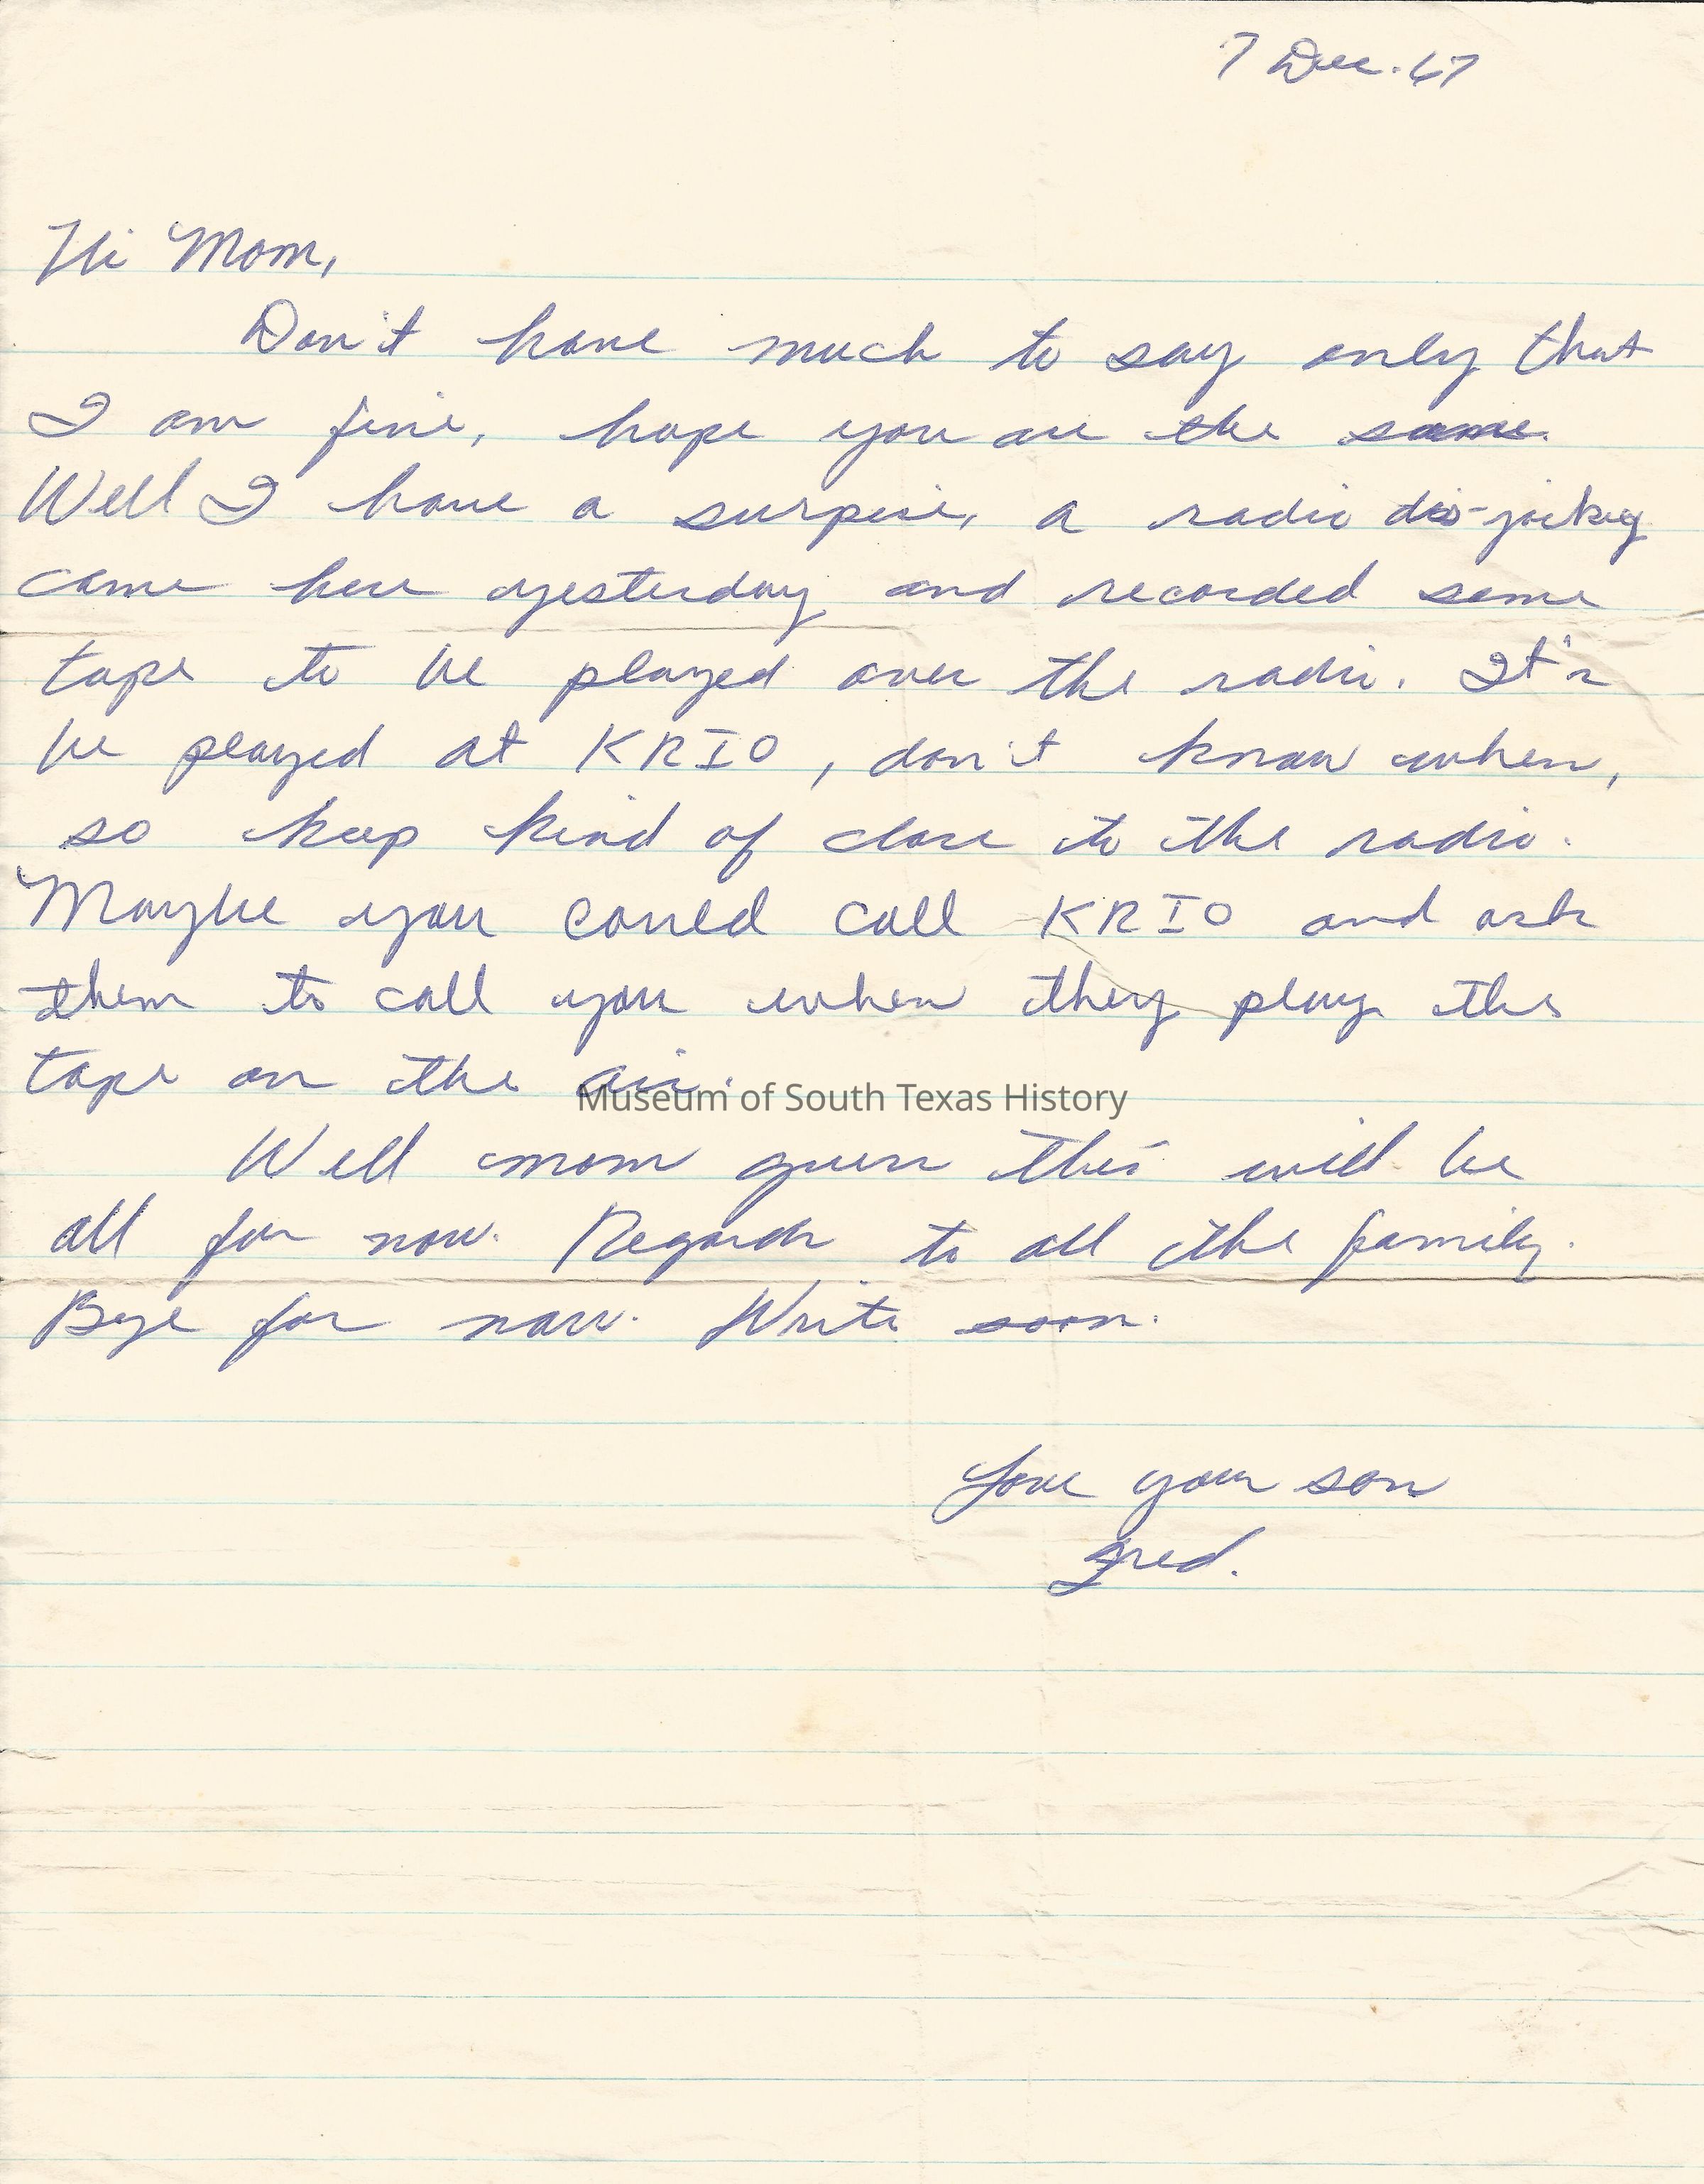 7 Dec. 67
Hi Mom,
Don't have much to say only that
I am fine, hope you are the same.
Well I have a surprise, a radio dis-jockey
came here yesterday and recorded some
tape to be played over the radio. It's
be played at KRIO, don't know when,
so keep kind of close to the radio.
Maybe you could call KRIO and ask
them to call you when they play the
tape on the air.
Museum of South Texas History
Well mom guess this will be
all for now. Regards to all the family.
Bye for now. Write soon.
Love your son
Fred.